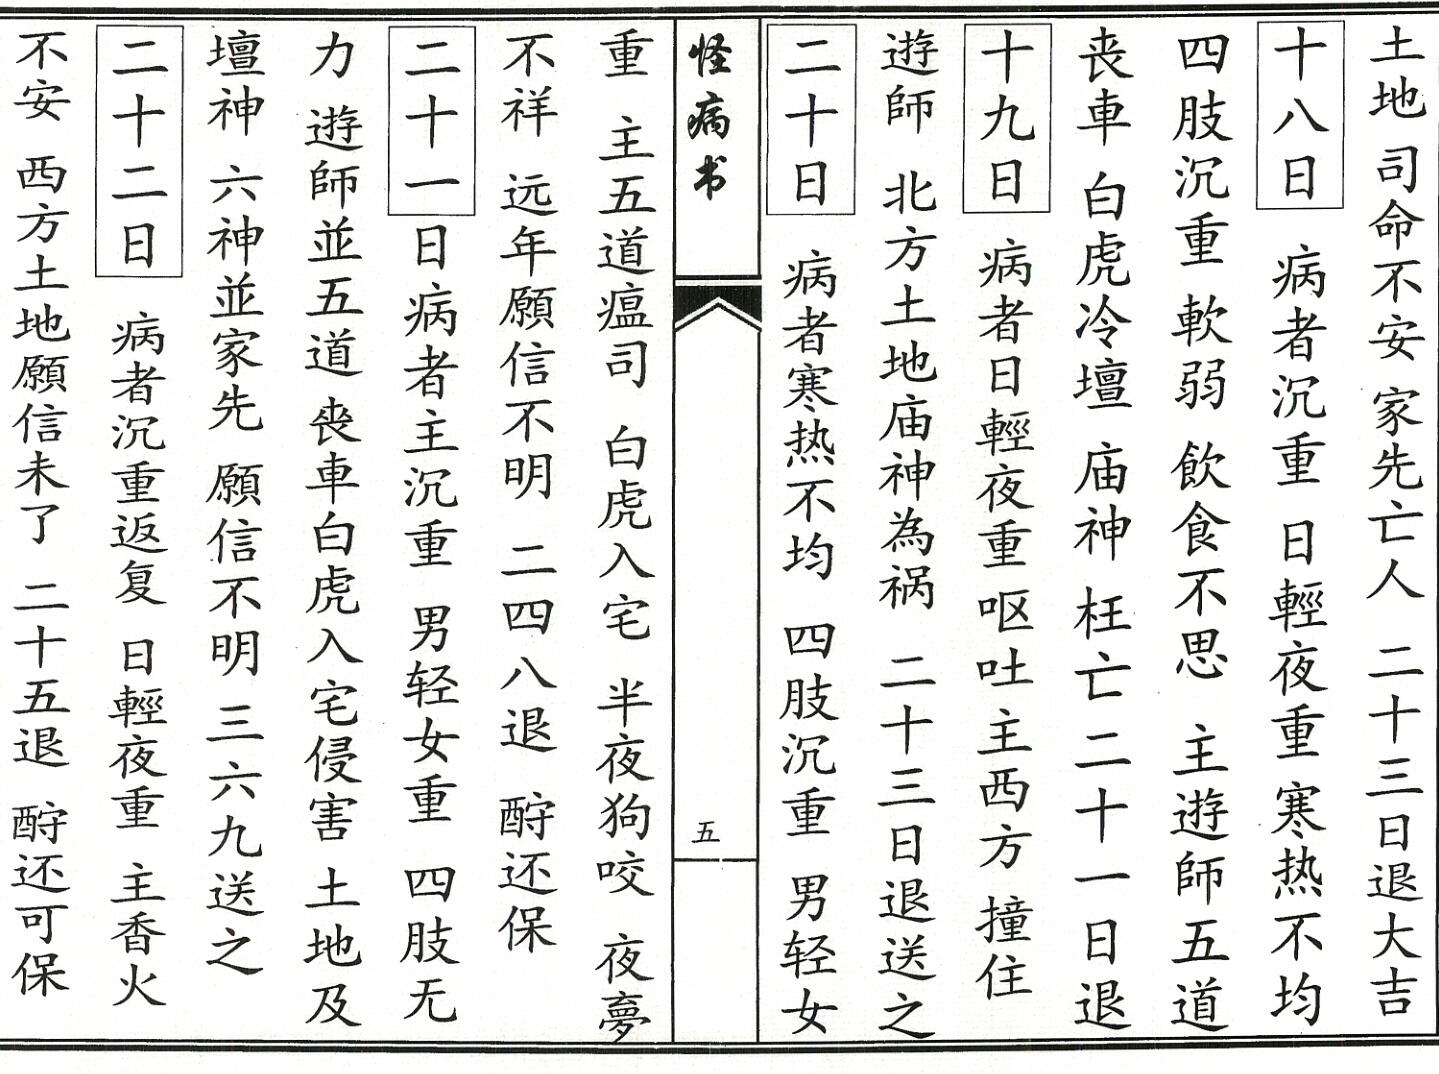 土地 司命不安 家先亡人 二十三日退大吉
十八日 病者沉重 日輕夜重 寒热不均
四肢沉重 軟弱 飲食不思 主遊師五道
丧車 白虎冷壇 庙神 枉亡 二十一日退
十九日 病者日輕夜重 呕吐 主西方 撞住
遊師 北方土地庙神為祸 二十三日退送之
二十日 病者寒热不均 四肢沉重 男轻女
怪病书
五
重 主五道瘟司 白虎入宅 半夜狗咬 夜夢
不祥 远年願信不明 二四八退 酧还保
二十一日病者主沉重 男轻女重 四肢无
力 遊師並五道 丧車白虎入宅侵害 土地及
壇神 六神並家先 願信不明 三六九送之
二十二日 病者沉重返复 日輕夜重 主香火
不安 西方土地願信未了 二十五退 酧还可保